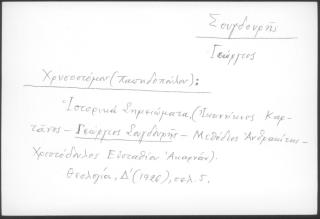 Σουγδουρῆς
Γεώργιος
Χρυσοστόμου (Παπαδοπούλου):
Ἱστορικὰ Σημειώματα, (Ἰωαννίκιος Καρ-
τάνος – Γεώργιος Σουγδουρῆς – Μεθόδιος Ἀνθρακίτης –
Χριστόδουλος Εὐσταθίου Ἀκαρνάν).
Θεολογία, Δ' (1926), σελ. 5.